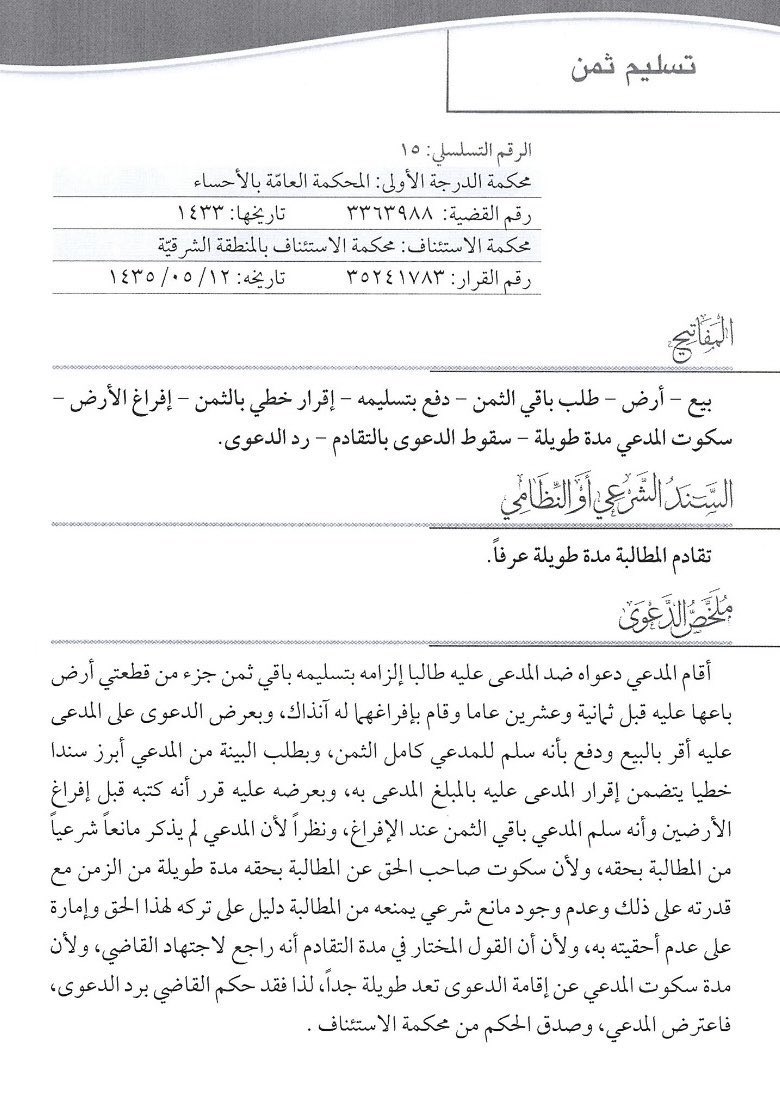 تسليم ثمن
الرقم التسلسلي: ١٥
محكمة الدرجة الأولى: المحكمة العامّة بالأحساء
رقم القضية: ٣٣٦٣٩٨٨ تاريخها: ١٤٣٣
محكمة الاستئناف: محكمة الاستئناف بالمنطقة الشرقيّة
رقم القرار: ٣٥٢٤١٧٨٣ تاريخه: ١٢/ ٠٥/ ١٤٣٥
المَفَاتِيح
بيع – أرض – طلب باقي الثمن – دفع بتسليمه – إقرار خطي بالثمن – إفراغ الأرض –
سكوت المدعي مدة طويلة – سقوط الدعوى بالتقادم – رد الدعوى.
السَّنَدُ الشَّرْعِي أَوِ النِّظَامِي
تقادم المطالبة مدة طويلة عرفاً.
مُلَخَّصُ الدَّعْوَى
أقام المدعي دعواه ضد المدعى عليه طالبا إلزامه بتسليمه باقي ثمن جزء من قطعتي أرض
باعها عليه قبل ثمانية وعشرين عاما وقام بإفراغهما له آنذاك، وبعرض الدعوى على المدعى
عليه أقر بالبيع ودفع بأنه سلم للمدعي كامل الثمن، وبطلب البينة من المدعي أبرز سندا
خطيا يتضمن إقرار المدعى عليه بالمبلغ المدعى به، وبعرضه عليه قرر أنه كتبه قبل إفراغ
الأرضين وأنه سلم المدعي باقي الثمن عند الإفراغ، ونظراً لأن المدعي لم يذكر مانعاً شرعياً
من المطالبة بحقه، ولأن سكوت صاحب الحق عن المطالبة بحقه مدة طويلة من الزمن مع
قدرته على ذلك وعدم وجود مانع شرعي يمنعه من المطالبة دليل على تركه لهذا الحق وإمارة
على عدم أحقيته به، ولأن أن القول المختار في مدة التقادم أنه راجع لاجتهاد القاضي، ولأن
مدة سكوت المدعي عن إقامة الدعوى تعد طويلة جداً، لذا فقد حكم القاضي برد الدعوى،
فاعترض المدعي، وصدق الحكم من محكمة الاستئناف .